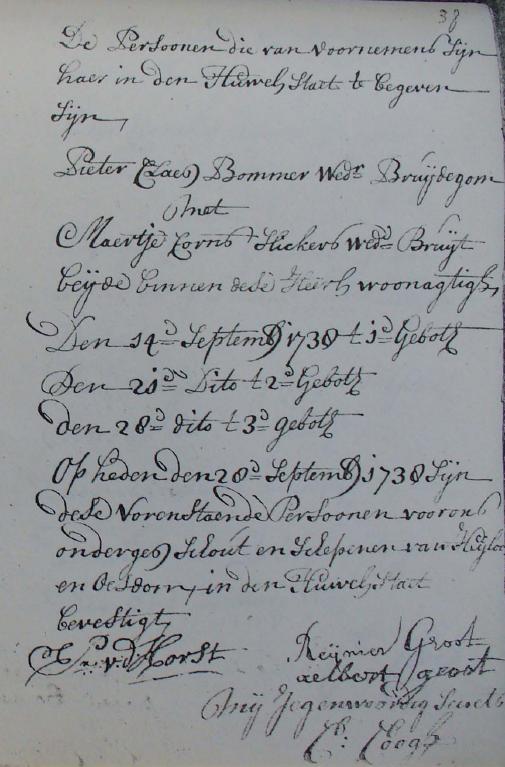 38
De Persoonen die van voornemens sijn
haer in den Huwels Staet te begeven
sijn,
Pieter Claes) Bommer Wedr Bruijdegom
met
Maertje Corns Slickers Wedе Bruijt
beijde binnen dese Heerh woonagtigh,
Den 14d Septemb) 1738 t 1d Gebodt
Den 21d Dito t 2d Gebodt
den 28d dito t 3d gebodt
Op heden den 28d Septemb) 1738 Sijn
dese Vorenstaende Persoonen voor ons
onderges) Schout en Schepenen van Heijloo
en Oesdom, in den Huwels Staet
bevestigt,
v:d Horst
Reijnier Groot
aelbert groot
Mij Jegenwoordig Secrets